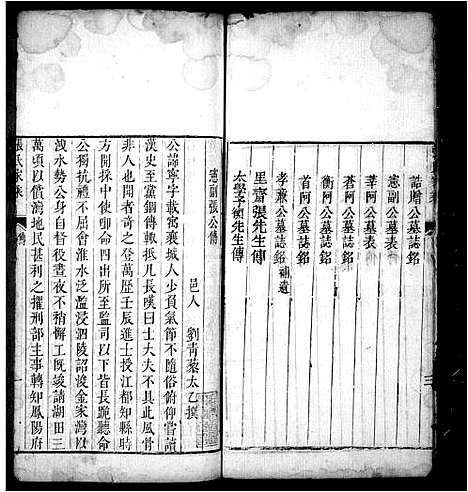 誥贈公墓誌銘
憲副公墓表
莘阿公墓表
蒼阿公墓誌銘
衡阿公墓誌銘
首阿公墓誌銘
孝兼公墓誌銘補遺
里齋張先生傳
太學子衡先生傳
三
憲副張公傳
邑人 劉青藜太乙撰
公諱寧字載寓襄城人少負氣節不隨俗俯仰嘗讀
漢史至黨錮傳輒抵几長嘆曰士大夫不具此風骨
非人也聞者奇之登萬歷壬辰進士授江都知縣時
方開採中使卿命四出所至監司以下皆長跪聽命
公獨抗禮不屈會淮水泛濫浸泗陵詔浚金家灣以
洩水勢公身自督役晝夜不稍懈工既竣請湖田三
萬頃以償灣地民甚利之擢刑部主事轉知鳳陽府
張氏家乘 傳